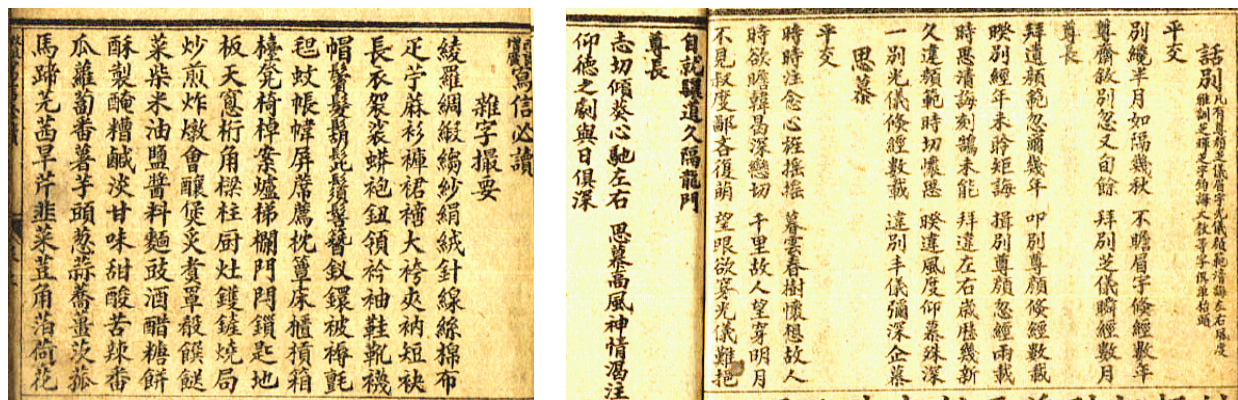 寫信必讀
雜字撮要
綾羅綢緞縐紗絹絨針線絲棉布
疋苧蔴衫褲裙襘大袴夾衲短袂
長衣袈裟蟒袍鈕領衿袖鞋靴襪
帽鬢髮鬍髭鬚髻簪釵鐶被褥氈
毯蚊帳幃屏蓆薦枕簟床櫃槓箱
檯凳椅棹案爐梯欄門閂鎖匙地
板天窓桁角樑柱厨灶鑊鏟燒局
炒煎炸燉會釀煲炙煮罩殽饌餸
菜柴米油鹽醬料麵豉酒醋糖餅
酥製醃糟鹹淡甘味甜酸苦辣香
瓜蘿蔔番薯芋頭葱蒜蕎薑茨菰
馬蹄芫茜旱芹韭菜荳角萡荷花
話別 凡有尊顏芝儀眉宇光儀顏範清誨左右風度
雅訓芝輝芝宇鈞誨大教等字俱單抬頭
平交
別纔半月如隔幾秋 不瞻眉宇倏經數年
尊齋敘別忽又旬餘 拜別芝儀瞬經數月
尊長
拜違顏範忽彌幾年 叩別尊顏倏經數載
暌別經年未聆矩誨 揖別尊顏忽經兩載
時思清誨刻鵠未能 拜違左右歲歷幾新
久違顏範時切懷思 暌違風度仰慕殊深
一別光儀倏經數載 違別丰儀彌深企慕
思慕
平交
時時注念心旌搖搖 暮雲春樹懷想故人
時欲瞻韓曷深戀切 千里故人望穿明月
不見叔度鄙吝復萌 望眼欲穿光儀難挹
自就驥道久隔龍門
尊長
志切傾葵心馳左右 思慕高風神情渴注
仰德之劇與日俱深